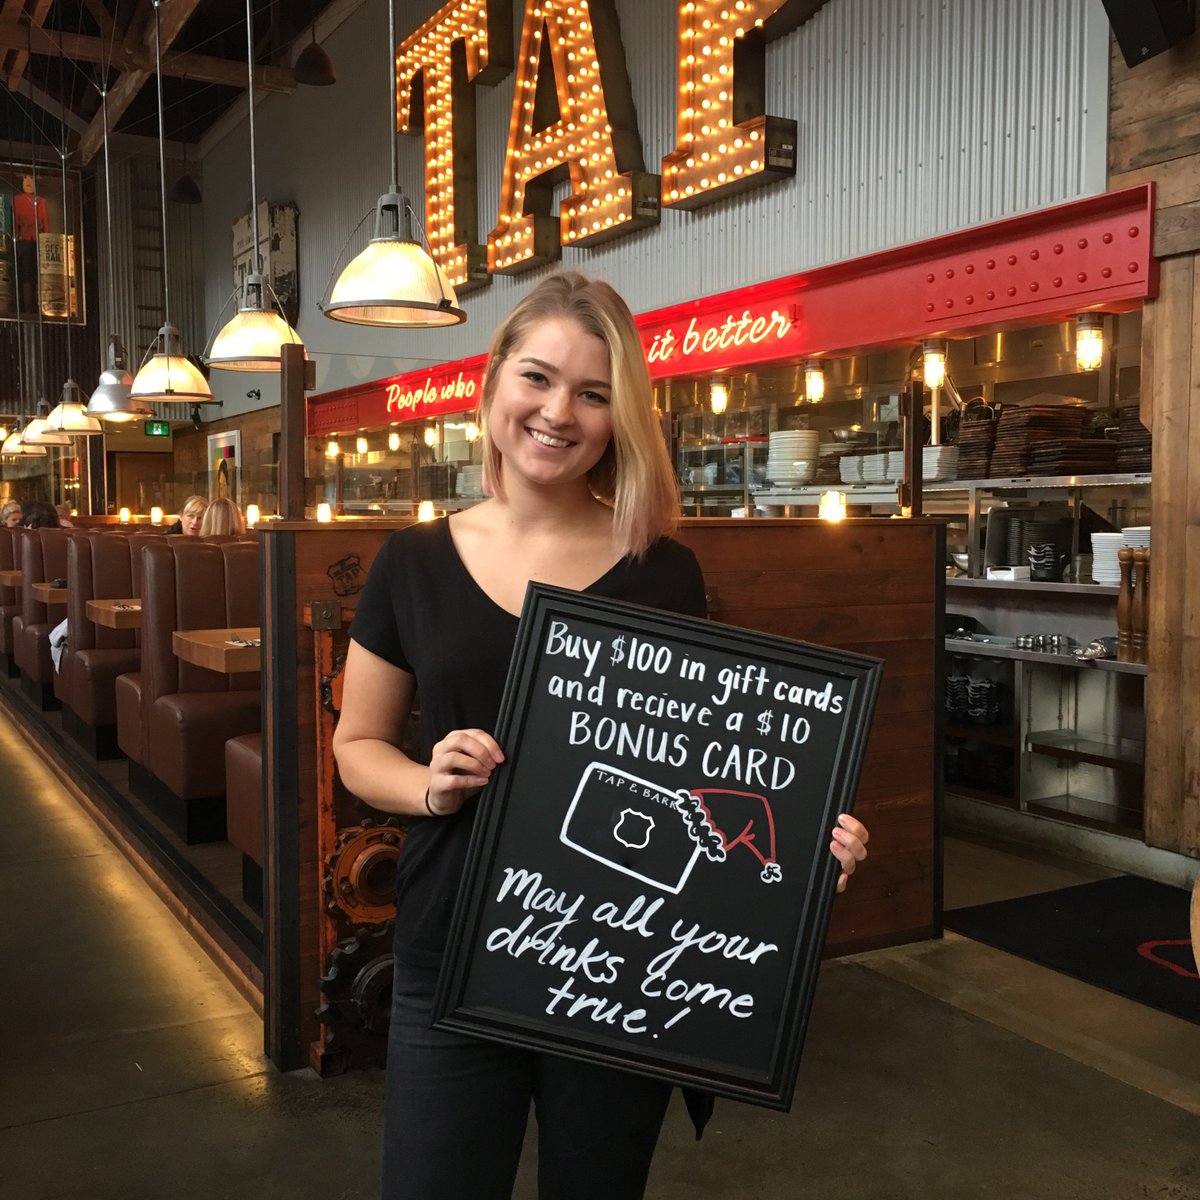 TAP
People who
it better
TAP
Buy $100 in gift cards
and recieve a $10
BONUS CARD
TAP & BARR
May all your
drinks come
true!